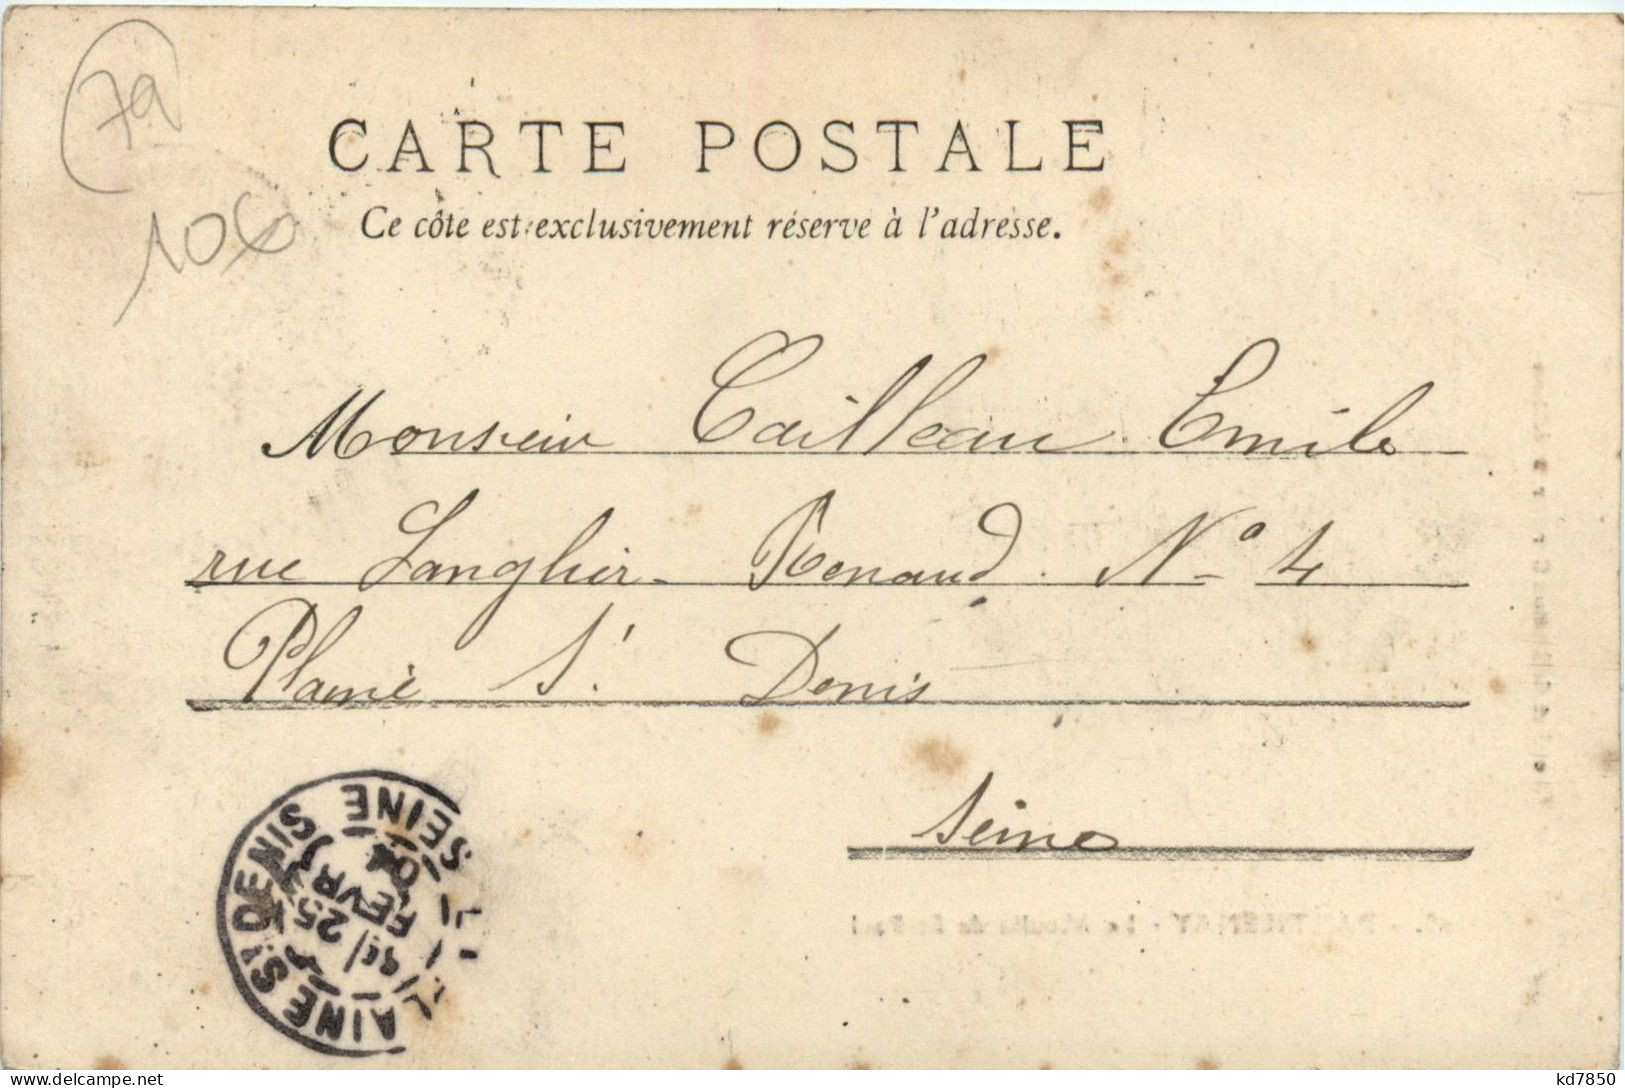 79
106
CARTE POSTALE
Ce côte est exclusivement réserve à l'adresse.
Monsieur Cailleau Emile
rue Langhier-Renaud. N° 4
Plaine St. Denis
Seine
LA PLAINE ST DENIS SEINE
25
FEVR
04
PARTHENAY - Le Moulin de
delcampe.net
kd7850